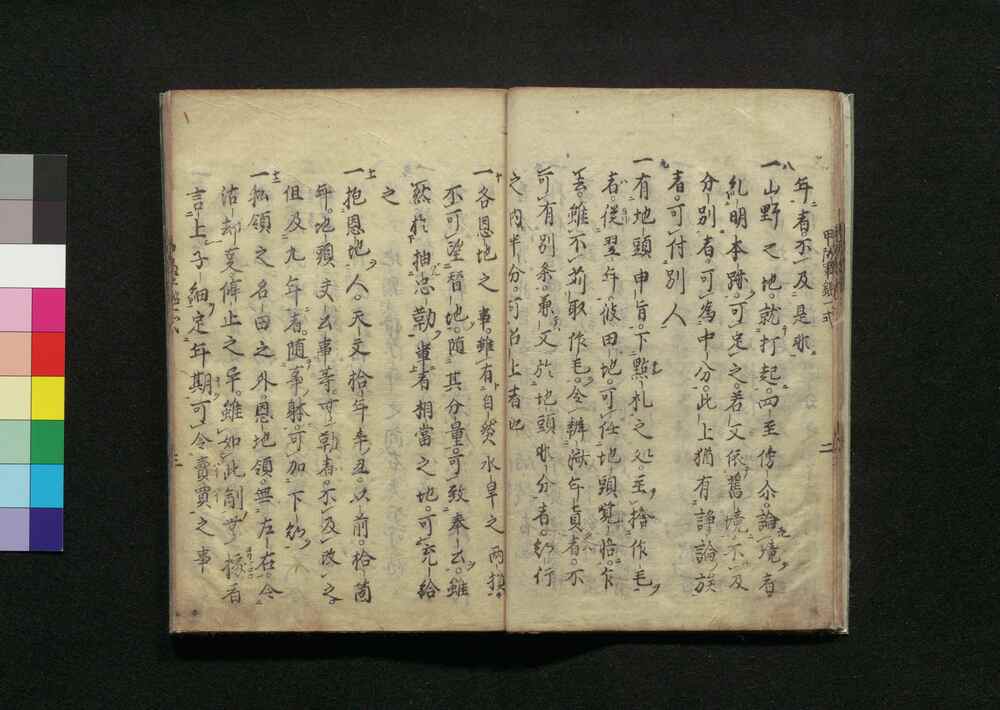 年者不及是非
八
一山野之地就打起四至傍尓論境者
糺明本跡可定之若又依舊境不及
分別者可為中分此上猶有諍論族
者可付別人
九
一有地頭申旨下點札之処主捨作毛
者従翌年彼田地可任地頭覚悟乍
去雖不苅取作毛令辨済年貢者不
可有別条兼又於地頭非分者知行
之内半分可召上者也
十
一各恩地之事雖有自然水旱之両損
不可望替地随其分量可致奉公雖
然於抽忠勤輩者相當之地可宛給
之
十一
一抱恩地人天文拾年辛丑以前拾箇
年地頭夫公事等勤者不及改之
但及九年者随事躰可加下知
十二
一私領之名田之外恩地領無左右令
沽却莫停止之早雖如此制無據者
言上子細定年期可令賣買之事
甲陽軍鑑
二
三